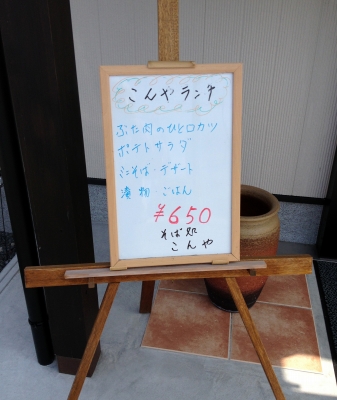 こんやランチ
ぶた肉のひと口カツ
ポテトサラダ
ミニそば・デザート
漬物・ごはん
¥650
そば処
こんや